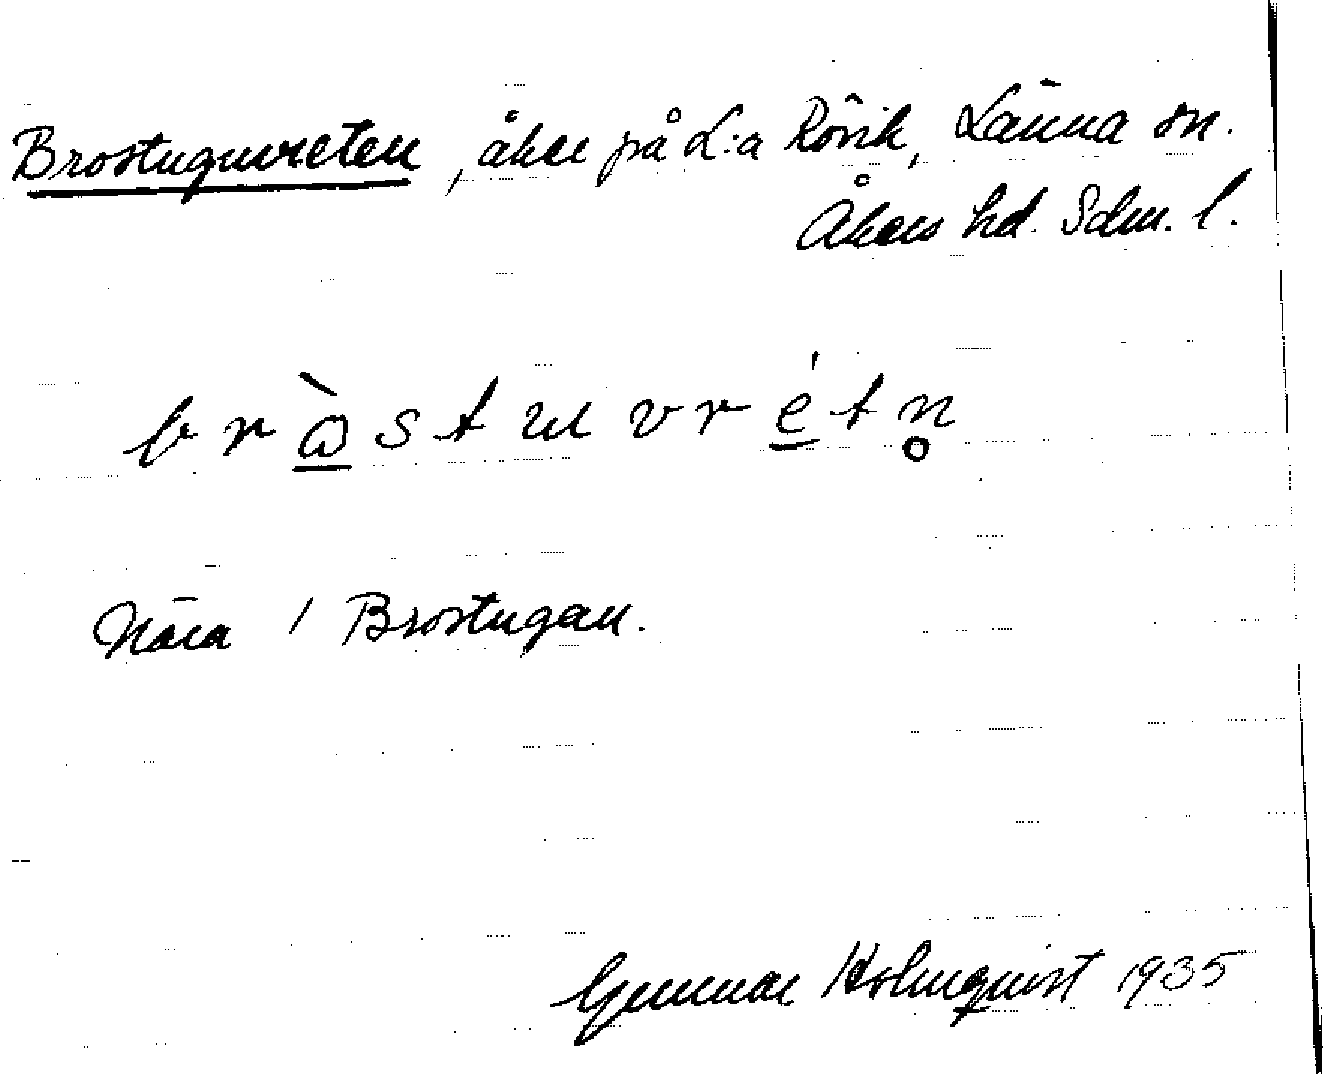 Brostuguvreten, åker på L:a Rörik, Länna sn.
Åkers hd. Sdm. l.
br à̲ s t u v r é̲ t n̥
Nära / Brostugan.
Gunnar Holmquist 1935